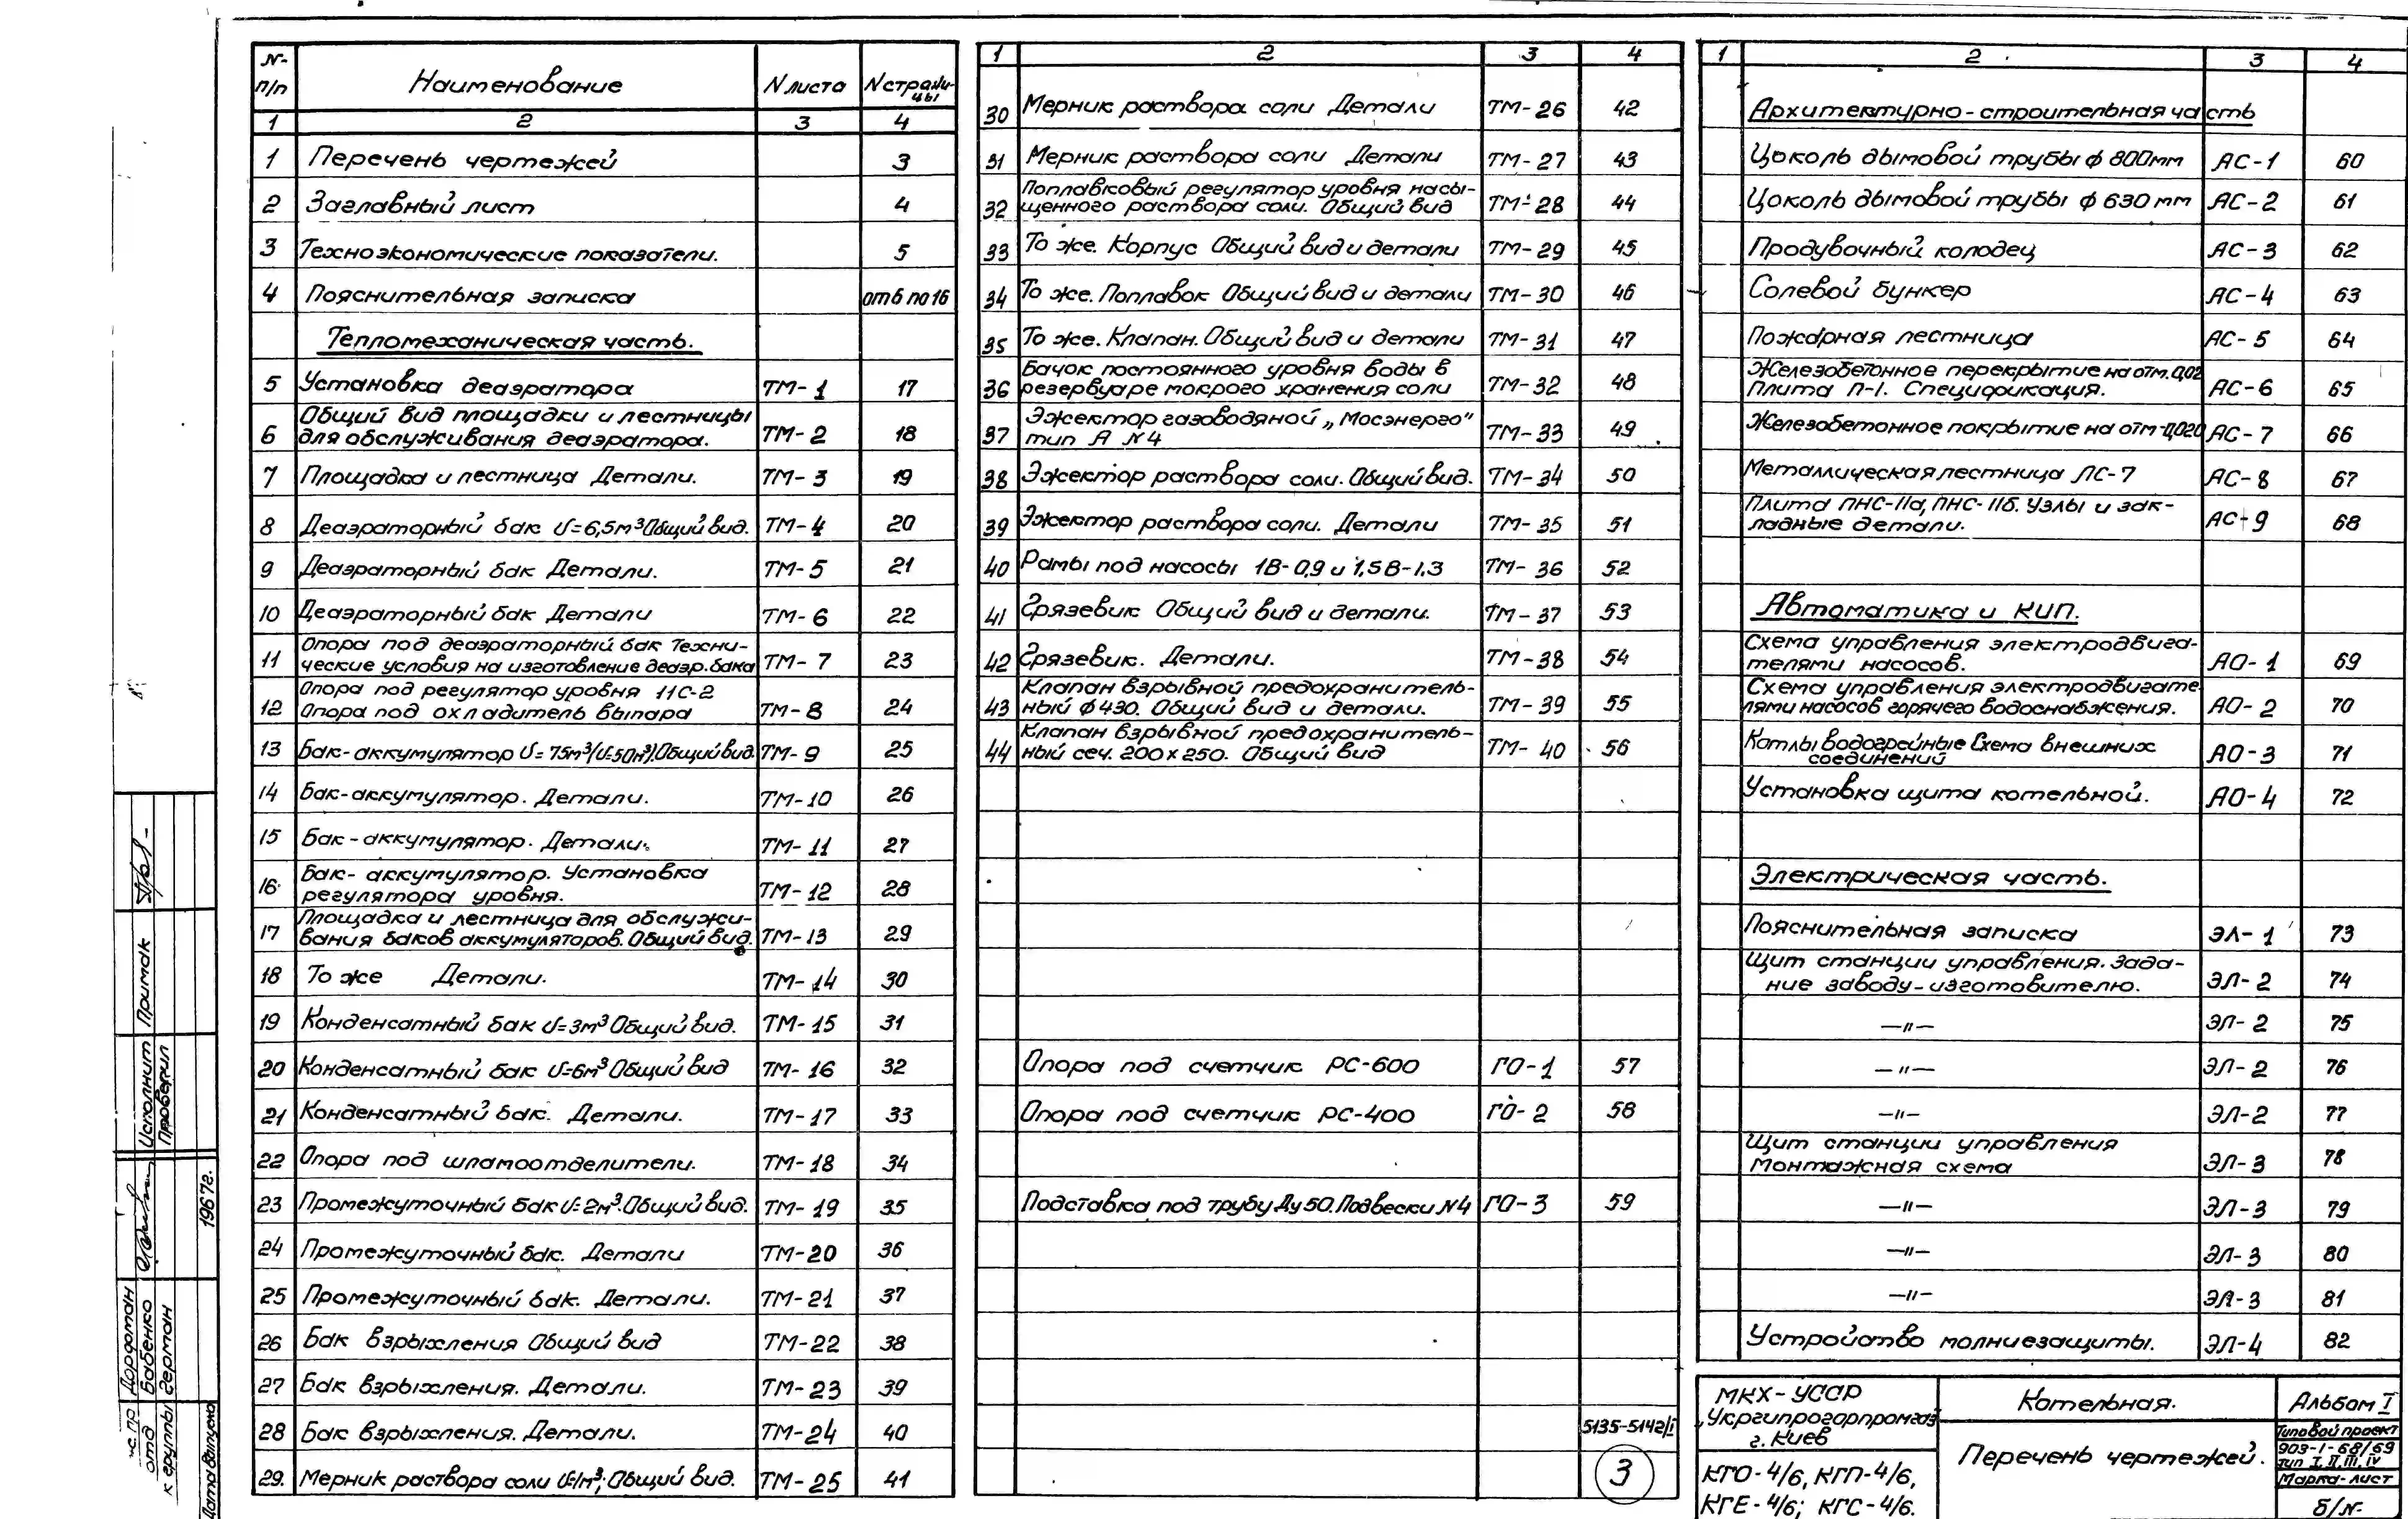 № п/п Наименование N листа N страницы
1 2 3 4
1 Перечень чертежей 3
2 Заглавный лист 4
3 Техноэкономические показатели. 5
4 Пояснительная записка от 6 по 16
Тепломеханическая часть.
5 Установка деаэратора ТМ-1 17
6 Общий вид площадки и лестницы
для обслуживания деаэратора. ТМ-2 18
7 Площадка и лестница Детали. ТМ-3 19
8 Деаэраторный бак V=6,5м³ Общий вид. ТМ-4 20
9 Деаэраторный бак Детали. ТМ-5 21
10 Деаэраторный бак Детали ТМ-6 22
11 Опора под деаэраторный бак Техни-
ческие условия на изготовление деаэр. бака ТМ-7 23
12 Опора под регулятор уровня 11С-2
Опора под охладитель выпара ТМ-8 24
13 Бак-аккумулятор V=75м³(V=50м³). Общий вид. ТМ-9 25
14 Бак-аккумулятор. Детали. ТМ-10 26
15 Бак-аккумулятор. Детали. ТМ-11 27
16 Бак-аккумулятор. Установка
регулятора уровня. ТМ-12 28
17 Площадка и лестница для обслужи-
вания баков аккумуляторов. Общий вид. ТМ-13 29
18 То же Детали. ТМ-14 30
19 Конденсатный бак V=3м³ Общий вид. ТМ-15 31
20 Конденсатный бак V=6м³ Общий вид ТМ-16 32
21 Конденсатный бак. Детали. ТМ-17 33
22 Опора под шламоотделители. ТМ-18 34
23 Промежуточный бак V=2м³. Общий вид. ТМ-19 35
24 Промежуточный бак. Детали ТМ-20 36
25 Промежуточный бак. Детали. ТМ-21 37
26 Бак взрыхления Общий вид ТМ-22 38
27 Бак взрыхления. Детали. ТМ-23 39
28 Бак взрыхления. Детали. ТМ-24 40
29. Мерник раствора соли V=1м³; Общий вид. ТМ-25 41
1 2 3 4
30 Мерник раствора соли Детали ТМ-26 42
31 Мерник раствора соли Детали ТМ-27 43
32 Поплавковый регулятор уровня насы-
щенного раствора соли. Общий вид ТМ-28 44
33 То же. Корпус Общий вид и детали ТМ-29 45
34 То же. Поплавок Общий вид и детали ТМ-30 46
35 То же. Клапан. Общий вид и детали ТМ-31 47
36 Бачок постоянного уровня воды в
резервуаре мокрого хранения соли ТМ-32 48
37 Эжектор газоводяной „Мосэнерго"
тип А №4 ТМ-33 49
38 Эжектор раствора соли. Общий вид. ТМ-34 50
39 Эжектор раствора соли. Детали ТМ-35 51
40 Рамы под насосы 1В-0,9 и 1,5В-1,3 ТМ-36 52
41 Грязевик Общий вид и детали. ТМ-37 53
42 Грязевик. Детали. ТМ-38 54
43 Клапан взрывной предохранитель-
ный ф430. Общий вид и детали. ТМ-39 55
44 Клапан взрывной предохранитель-
ный сеч. 200х250. Общий вид ТМ-40 56
Опора под счетчик РС-600 ГО-1 57
Опора под счетчик РС-400 ГО-2 58
Подставка под трубу Ду50. Подвески №4 ГО-3 59
5135-5142/I
3
1 2 3 4
Архитектурно-строительная часть
Цоколь дымовой трубы ф 800мм АС-1 60
Цоколь дымовой трубы ф 630 мм АС-2 61
Продувочный колодец АС-3 62
Солевой бункер АС-4 63
Пожарная лестница АС-5 64
Железобетонное перекрытие на отм. 0,02
Плита П-1. Спецификация. АС-6 65
Железобетонное покрытие на отм -0,020 АС-7 66
Металлическая лестница ЛС-7 АС-8 67
Плита ПНС-11а, ПНС-11б. Узлы и зак-
ладные детали. АС-9 68
Автоматика и КИП.
Схема управления электродвига-
телями насосов. АО-1 69
Схема управления электродвигате
лями насосов горячего водоснабжения. АО-2 70
Котлы водогрейные Схема внешних
соединений АО-3 71
Установка щита котельной. АО-4 72
Электрическая часть.
Пояснительная записка ЭЛ-1 73
Щит станции управления. Зада-
ние заводу-изготовителю. ЭЛ-2 74
—"— ЭЛ-2 75
—"— ЭЛ-2 76
—"— ЭЛ-2 77
Щит станции управления
Монтажная схема ЭЛ-3 78
—"— ЭЛ-3 79
—"— ЭЛ-3 80
—"— ЭЛ-3 81
Устройство молниезащиты. ЭЛ-4 82
МКХ-УССР
„Укргипрогорпромгаз"
г. Киев
КГО-4/6, КГП-4/6,
КГЕ-4/6; КГС-4/6.
Котельная.
Перечень чертежей.
Альбом I
Типовой проект
903-1-68/69
тип I, II, III, IV
Марка-лист
б/№
Исполнил Примак
Проверил
1967г.
Дорфман
отд Бабенко
к группы Герман
Дата выпуска